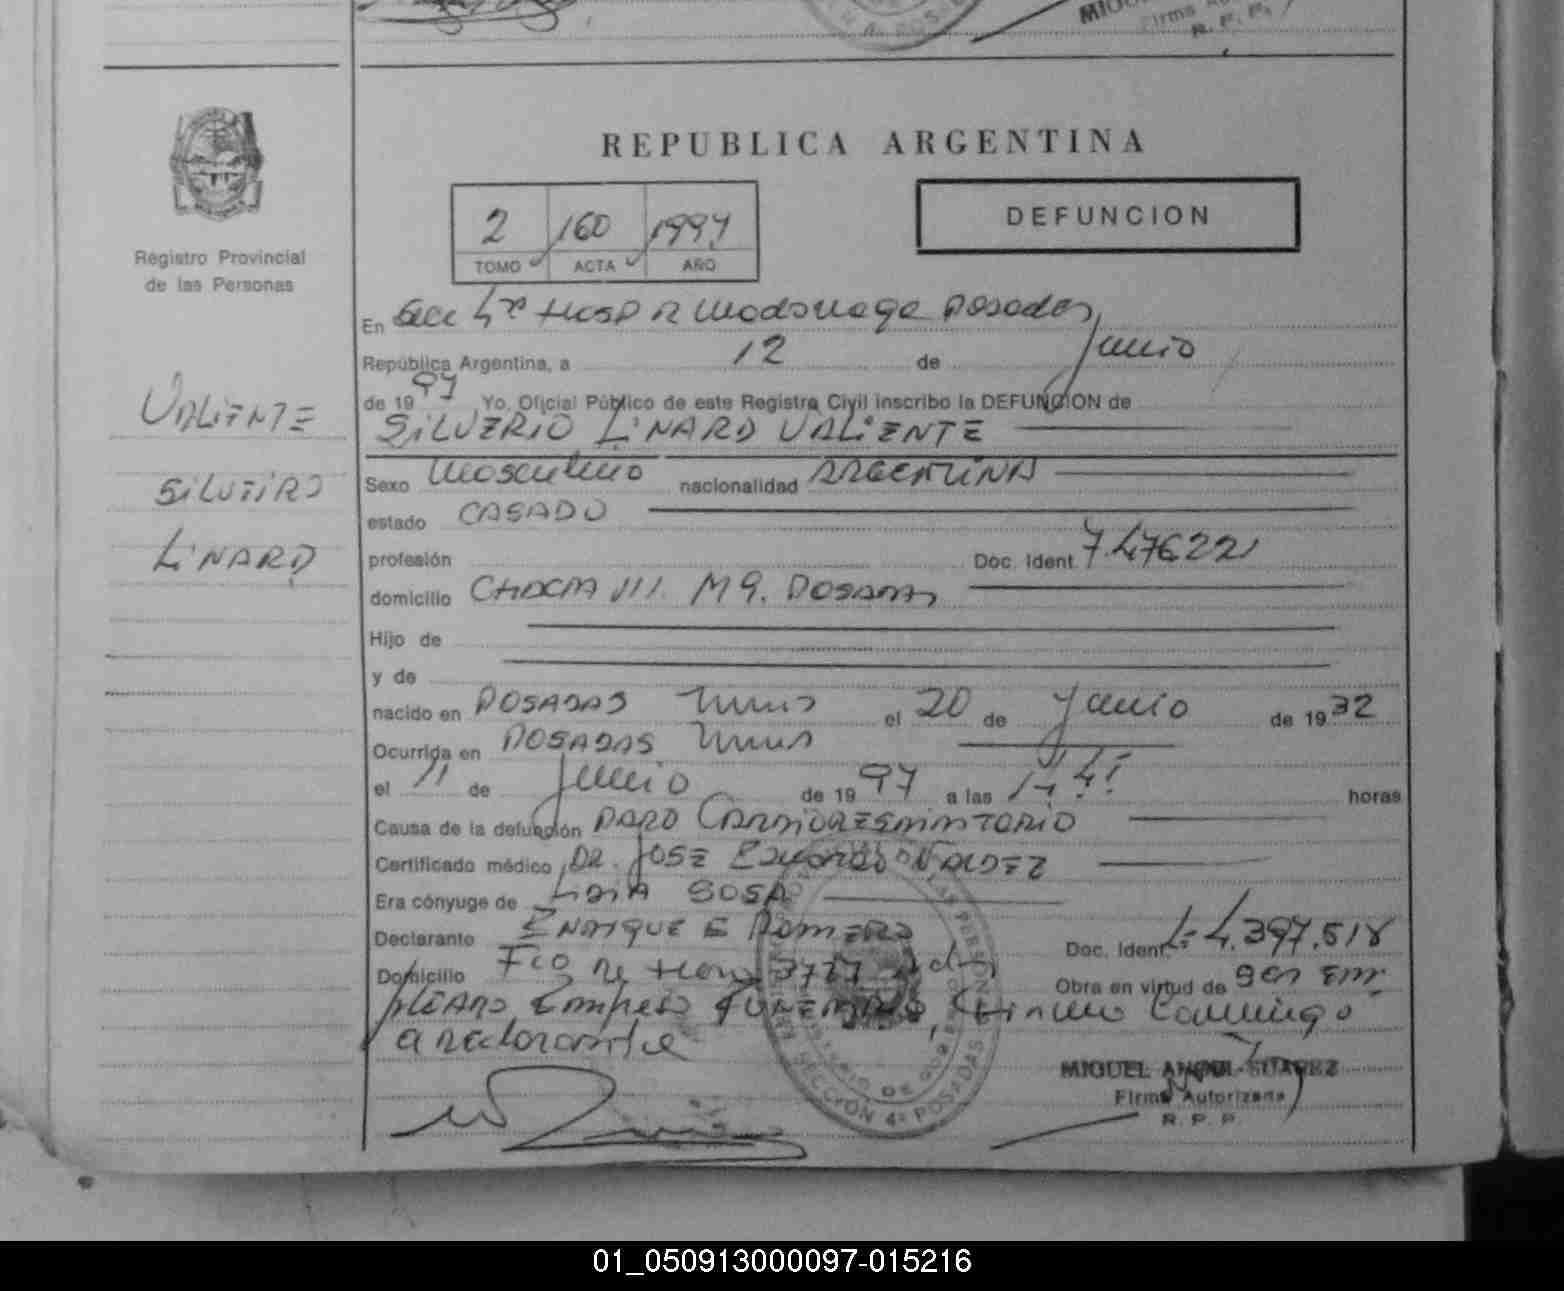 REPUBLICA ARGENTINA
Registro Provincial
de las Personas
2 160 1997
TOMO ACTA AÑO
DEFUNCION
VALIENTE
SILVEIRO
LINARD
En Secc 4ta Hosp R Madariaga Posadas
República Argentina, a 12 de Junio
de 1997 Yo, Oficial Público de este Registro Civil inscribo la DEFUNCION de
SILVERIO LINARD VALIENTE
Sexo Masculino nacionalidad ARGENTINA
estado CASADO
profesión Doc. Ident. 7.476.221
domicilio CHACRA 111. M 9. POSADAS
Hijo de
y de
nacido en POSADAS Mnes el 20 de Junio de 1932
Ocurrida en POSADAS Mnes
el 11 de Junio de 1997 a las horas
Causa de la defunción PARO CARDIORESPIRATORIO
Certificado médico DR. JOSE Eduardo VALDEZ
Era cónyuge de LIDIA SOSA
Declarante ENRIQUE E ROMERO Doc. Ident. L.E 4.397.518
Domicilio Fco de Haro 3727 Obra en virtud de ser Em
pleado Empresa FUNEBRE, Firma Conmigo
el declarante
SECCION 4ª POSADAS
MIGUEL ANGEL SUAREZ
Firma Autorizada
R. P. P.
01_050913000097-015216